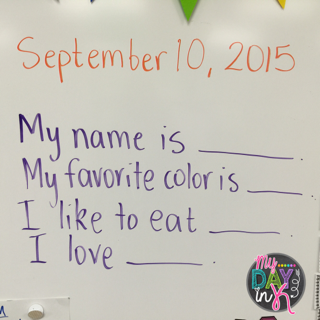 September 10, 2015
My name is ________.
My favorite color is _____.
I like to eat ______.
I love _______.
My
DAY
in K